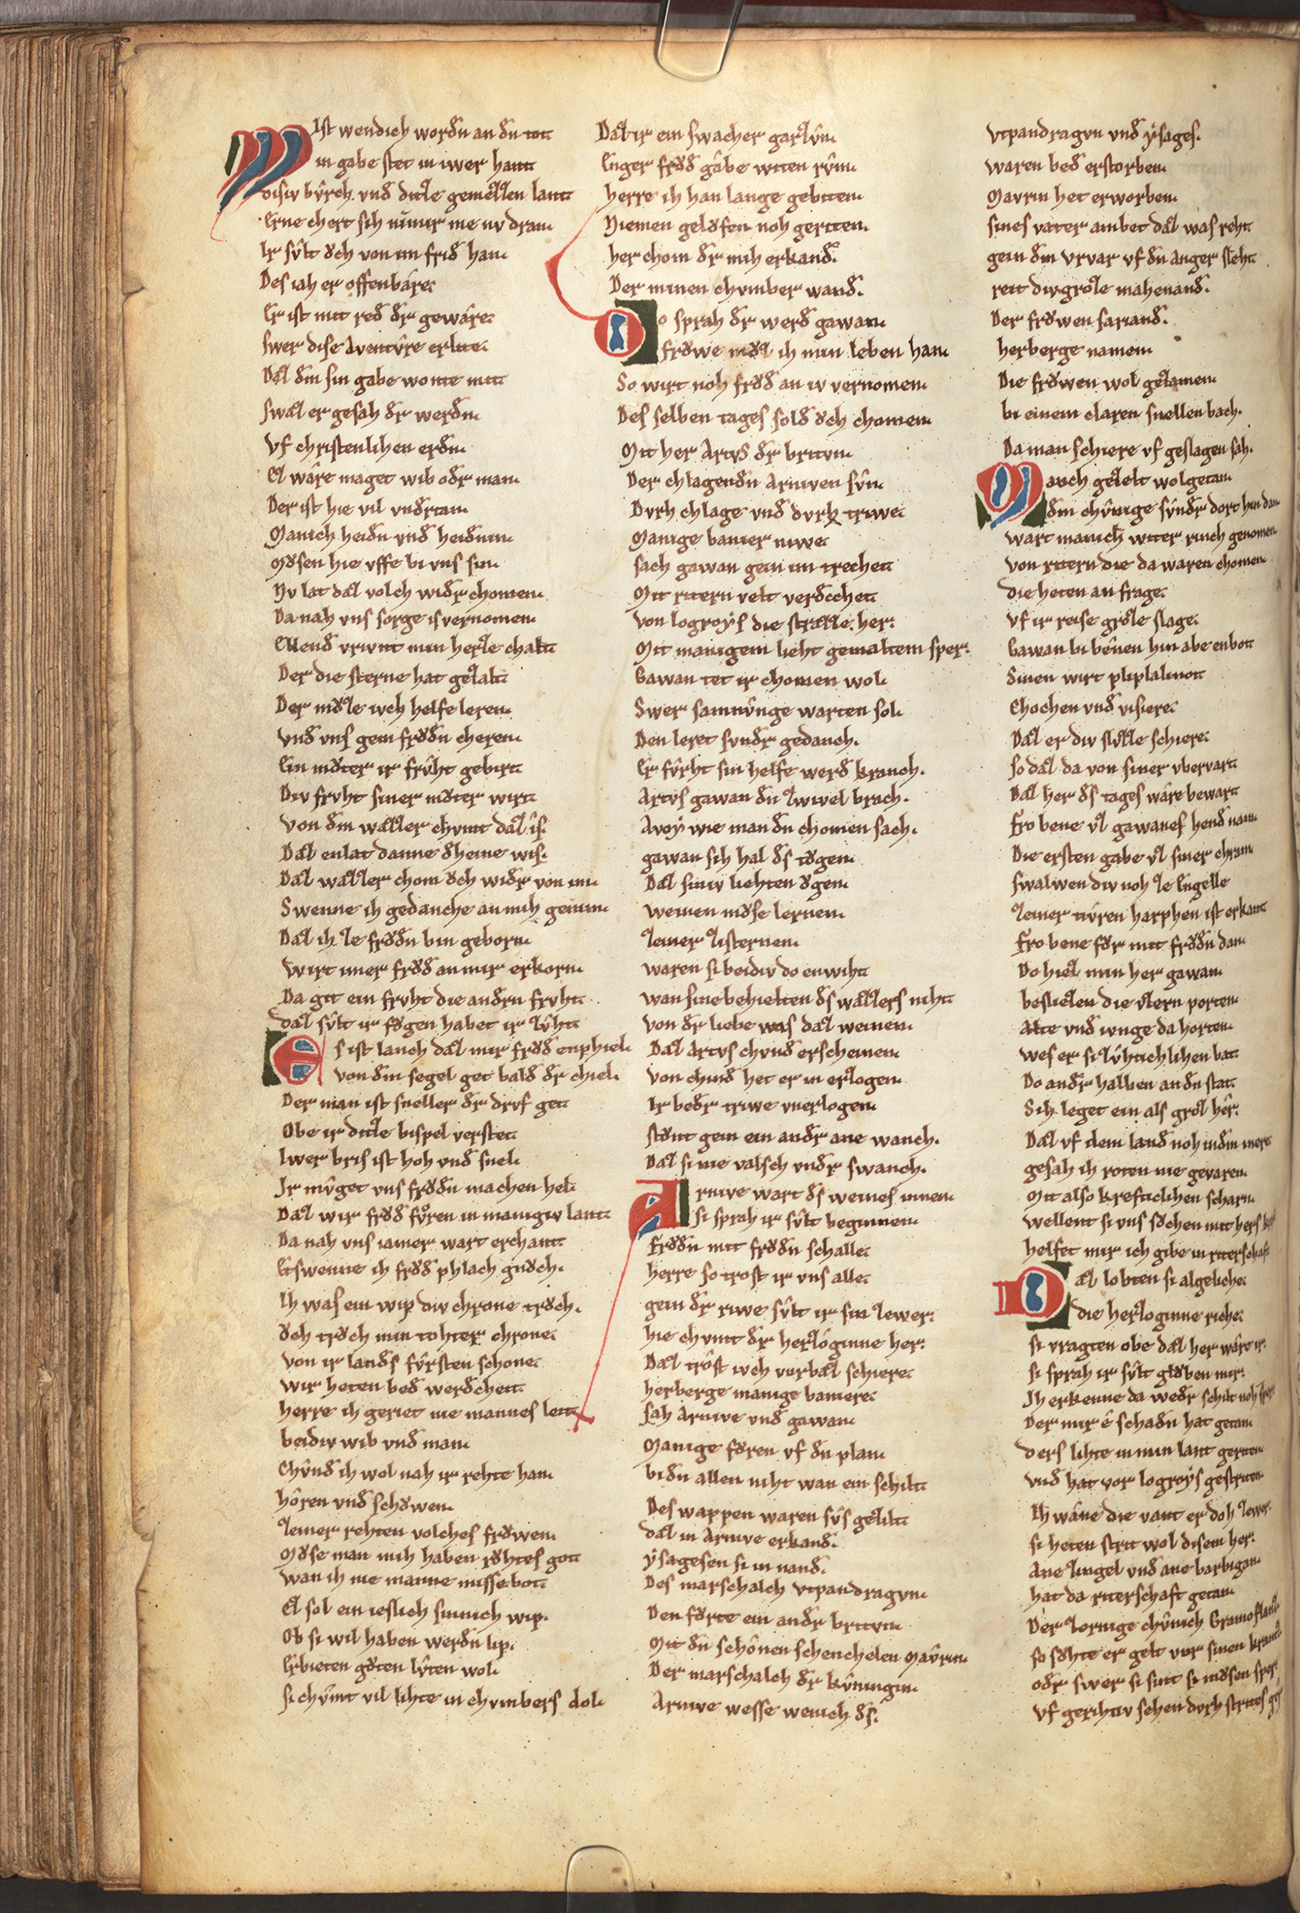 Ist wendich wordn an dn tot
in gabe stet in iwer hant
disiv bvͤrch. vnd ditze gemezzen lant
Erne chert sih nimmer me nv dran
Ir svlt och von im frid han
Des iah er offenbâre
Er ist mit red dr gewâre
swer dise Aventvͤre erlite
Daz dem sin gabe wonte mite
swaz er gesah dr werdn
Vf christenlihen erdn
Ez wâre maget wib odr man
Der ist hie vil vndrtan
Manich heidn vnd heidnin
Mosen hie vffe bi vns sin
Nv lat daz volch widr chomen
Da nah vns sorge is vernomen
Ellend vrivnt min herze chalt
Der die sterne hat gezalt
Der moze iwch helfe leren
Vnd vns gein frodn cheren
Ein moter ir frvht gebirt
Div frvht siner moter wirt
Von dem wazzer chvmt daz îs.
Daz enlat danne dheine wis.
Daz wazzer chom och widr von im
Swenne ih gedanche an mih genim
Daz ih ze frodn bin geborn
Wirt imer frod an mir erkorn
Da git ein frvht die andrn frvht
daz svlt ir fogen habet ir zvht
Es ist lanch daz mir frod enphiel
von dem segel get bald dr chiel
Der man ist sneller dr drvf get
Obe ir ditze bispel verstet
Iwer bris ist hoh vnd snel
Ir mvget vns frodn machen hel
Daz wir frod fvͦren in manigiv lant
Da nah vns iamer wart erchant
Etswenne ih frod phlach gnoch.
Ih was ein wip div chrone troch.
och troch min tohter chrone
von ir lands fvrsten schone
wir heten bed werdcheit
herre ih geriet nie mannes leit
beidiv wib vnd man
Chvnd ih wol nah ir rehte han
hôren vnd schowen
zeiner rehten volches frowen
Mose man mih haben rohtes got
wan ih nie manne missebot
Ez sol ein ieslich sinnich wip.
Ob si wil haben werdn lip.
Erbieten goten lvten wol
si chvmt vil lihte in chvmbers dol
Daz ir ein swacher garzvn
Enger frod gâbe witen rvm
herre ih han lange gebiten
Niemen gelofen noh geriten
her chom dr mih erkand
Der minen chvmber wand.
Do sprah dr werd gawan
frowe moz ih min leben han
So wirt noh frod an iv vernomen
Des selben tages sold och chomen
Mit her Artvs dr brittvn
Der chlagendn Arniven svn
Dvrh chlage vnd dvrh triwe
Manige banier niwe
sach gawan gein im trechen
Mit ritern velt verdechen
Von logroys die strazze her
Mit manigem lieht gemaltem sper.
Gawan tet ir chomen wol
Swer samnvnge warten sol
Den leret svmdr gedanch.
Er fvrht sin helfe werd kranch.
Artvs gawan dn zwivel brach.
Avoy wie man dn chomen sach.
gawan sih hal ds togen
Daz siniv liehten ogen
weinen mose lernen
zeiner zisternen
waren si beidiv do enwiht
wan sine behielten ds wazzers niht
Von dr liebe was daz weinen
Daz Artvs chvnd erscheinen
von chind het er in erzogen
Ir bedr triwe vnerlogen
stont gein ein andr ane wanch.
Daz si nie valsch vndr swanch.
Arnive wart ds weines innen
si sprah ir svlt beginnen
frodn mit frodn schalle
herre so trost ir vns alle
gein dr riwe svlt ir sin ze wer
hie chvmt dr herzoginne her
Daz trôst iwch vurbaz schiere
herberge manige baniere
sah Arnive vnd gawan
Manige fôren vf dn plan
bi dn allen niht wan ein schilt
Des wappen waren svs gezilt
daz in Arnive erkand.
ysagesen si in nand.
Des marschalch vtpandragvn
Den forte ein andr brittvn
Mit dn schônen schenchelen Mavrin
Der marschalch dr kvnnigin
Arnive wesse wenich ds.
Vtpandragvn vnd ysages.
waren bed erstorben
Mavrin het erworben
sines vater ambet daz was reht
gein dem vrvar vf dn anger sleht
reit div groze mahenand.
Der frowen sariand.
herberge namen
Die frowen wol gezamen
bi einem claren snellen bach.
Da man schiere vf geslagen sah.
Manch gezelt wolgetan
dem chvnige svndr dort hin dan
wart manich witer rinch genomen
von ritern die da waren chomen
die heten an frage
vf ir reise groze slage
Gawan bi bênen hin abe enbot
Sinen wirt pliplalinot
Chochen vnd visiere
Daz er div slvzze schiere
so daz da von siner vbervart
Daz her ds tages wâre bewart
fro bene vz gawanes hend nam
Die ersten gabe vz siner chram
swalwen div noh ze Engelle
zeiner tivren harphen ist erkant
fro bene for mit frodn dan
Do hiez min her gawan
besliezen die vzern porten
Alte vnd ivnge da horten
wes er si zvhtichlihen bat
Do andr halben an dn stat
Sih leget ein als groz hêr
Daz vf dem land noh in dem mere
gesah ih roten nie gevaren
Mit also kreftichlihen scharn
wellent si vns sochen mit hers
helfet mir ich gibe in riterschaft
Daz lobten si algeliche
die herzoginne riche
si vragten obe daz her wâre ir
si sprah ir svlt globen mir
Ih erkenne da wedr schilt noh
Der mir ê schadn hat getan
ders lihte in min lant geriten
vnd hat vor logroys gestriten
Ih wâne die vant er doh ze wer
si heten strit wol disem her
Ane zingel vnd ane barbigan
hat da riterschaft getan
Der zornige chvnich Gramoflanz
so sohte er gelt vur sinen kranz
odr swer si sint si mosen sper
vf gerihtiv sehen dvrh strites ger